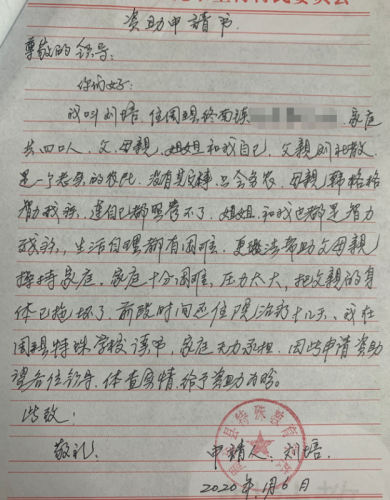 村民委员会
资助申请书
尊敬的领导：
你们好：
我叫刘培，住固县终南镇 家庭
共四口人，父、母亲，姐姐和我自己，父亲刘社教
是一个老实的农民，没有其它 只会务农，母亲
智力残疾，连自己都照养不了，姐姐和我也都是智力
残疾，生活自理都有困难，更 法帮助父母亲
操持家庭。家庭十分困难，压力太大，把父亲的身
体已拖坏了，前段时间还住院治疗十几天，我在
县特殊学校读书，家庭无力承担，因此申请资助
望各位领导，体查 情，给予资助为盼。
此致：
敬礼
申请人：刘培
县特殊教育
2020年1月6日